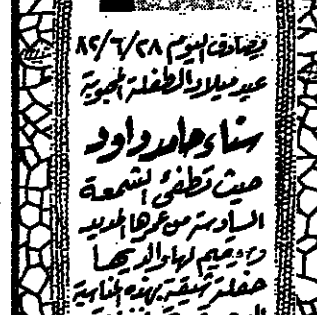 ويصادف اليوم ٨٢/٦/٢٨
عيد ميلاد الطفلة المحبوبة
سناء حامد داود
حيث تطفئ الشمعة
السادسة من عمرها المديد
لها والديها
حفلة شيقة بهذه المناسبة